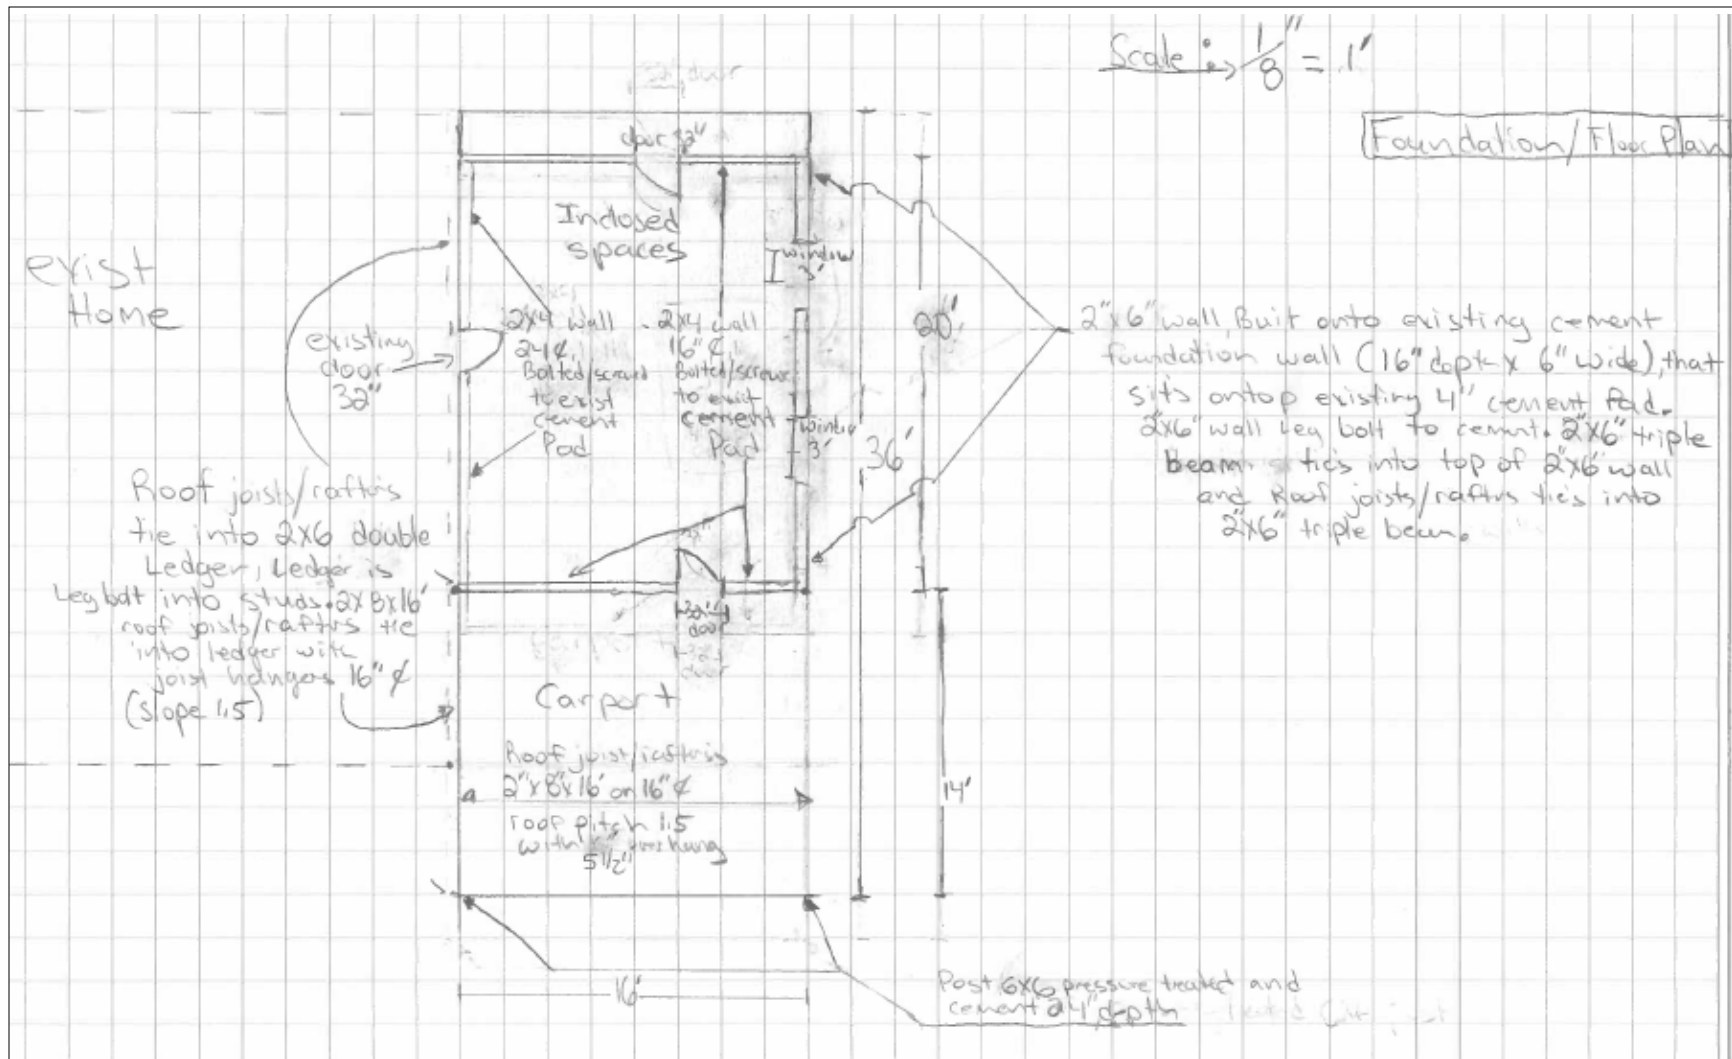 Scale: 1/8" = 1'
Foundation/Floor Plan
door 32"
Inclosed
spaces
window
3'
exist
Home
existing
door
32"
2x4 wall
24 ¢
Bolted/screwed
to exist
cement
Pad
2x4 wall
16" ¢
Bolted/screws
to exist
cement
Pad
window
3'
20'
36'
2"x6" wall, Buit onto existing cement
foundation wall (16" depth x 6" wide), that
sits ontop existing 4" cement Pad.
2"x6" wall Leg bolt to cement. 2"x6" triple
beam ties into top of 2"x6" wall
and Roof joists/raftrs ties into
2"x6" triple beam.
Roof joists/raftrs
tie into 2x6 double
Ledger, Ledger is
Leg bolt into studs. 2x8x16'
roof joists/raftrs tie
into ledger with
joist hangers 16" ¢
(slope 1.5)
32"
door
Carport
Roof joist/raftris
2"x8"x16' on 16" ¢
roof pitch 1.5
with overhang
5 1/2"
14'
16'
Post 6x6 pressure treated and
cement 24" depth